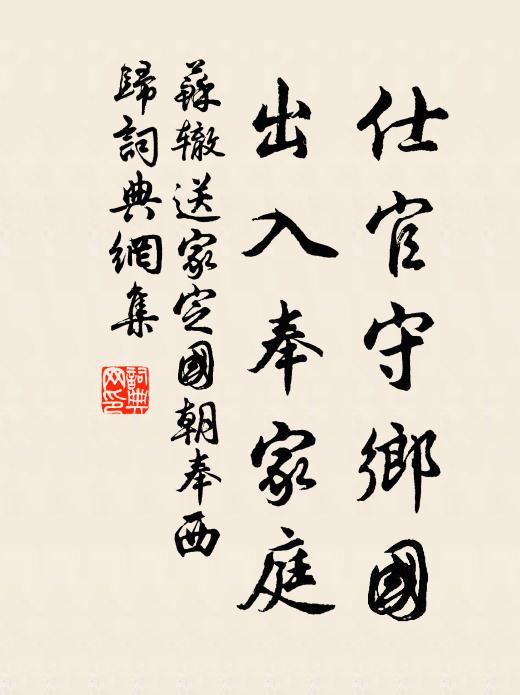 仕官守鄉國
出入奉家庭
蘇辙送家定國朝奉西
歸詞典網集
詞典
网印